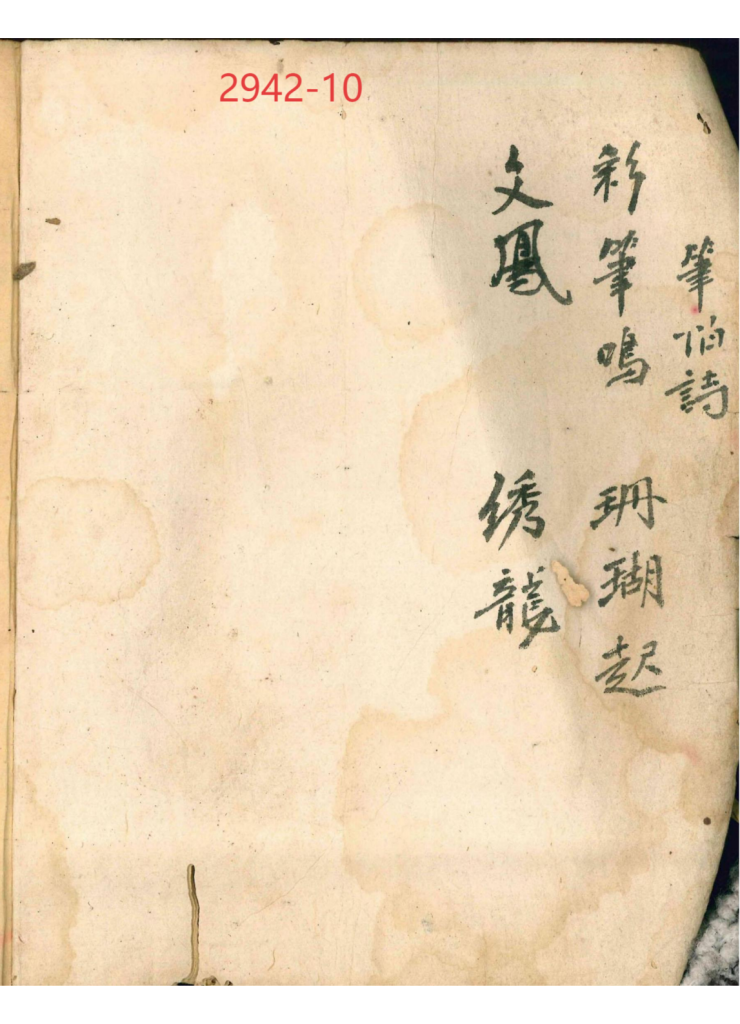 2942-10
筆怕詩
彩筆鳴 珊瑚起
文鳳 綉龍